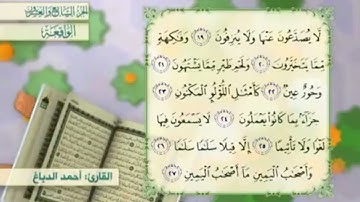 الجزء السابع والعشرون
الواقعة
لَّا يُصَدَّعُونَ عَنْهَا وَلَا يُنزِفُونَ ١٩ وَفَٰكِهَةٍ
مِّمَّا يَتَخَيَّرُونَ ٢٠ وَلَحْمِ طَيْرٍ مِّمَّا يَشْتَهُونَ ٢١
وَحُورٌ عِينٌ ٢٢ كَأَمْثَٰلِ ٱللُّؤْلُؤِ ٱلْمَكْنُونِ ٢٣
جَزَآءًۢ بِمَا كَانُوا۟ يَعْمَلُونَ ٢٤ لَا يَسْمَعُونَ فِيهَا
لَغْوًا وَلَا تَأْثِيمًا ٢٥ إِلَّا قِيلًا سَلَٰمًا سَلَٰمًا ٢٦
وَأَصْحَٰبُ ٱلْيَمِينِ مَآ أَصْحَٰبُ ٱلْيَمِينِ ٢٧
القارئ: أحمد الدباغ